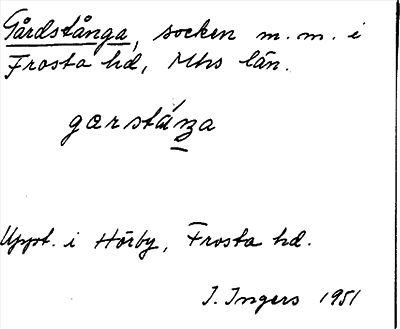 Gårdstånga, socken m.m. i
Frosta hd, Mhs län.
garstáŋa
Uppt. i Hörby, Frosta hd.
I. Ingers 1951